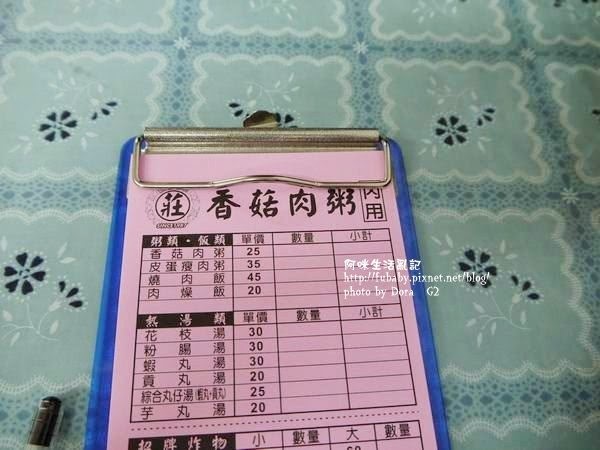 莊 香菇肉粥 內用
SINCE1987
粥類·飯類 單價 數量 小計
香菇肉粥 25
皮蛋瘦肉粥 35
燒肉飯 45
肉燥飯 20
阿咪生活亂記
http://fubaby.pixnet.net/blog/
photo by Dora G2
熱湯類 單價 數量 小計
花枝湯 30
粉腸湯 30
蝦丸湯 30
貢丸湯 20
綜合丸仔湯(蝦丸+貢丸) 25
芋丸湯 20
招牌炸物 小 數量 大 數量